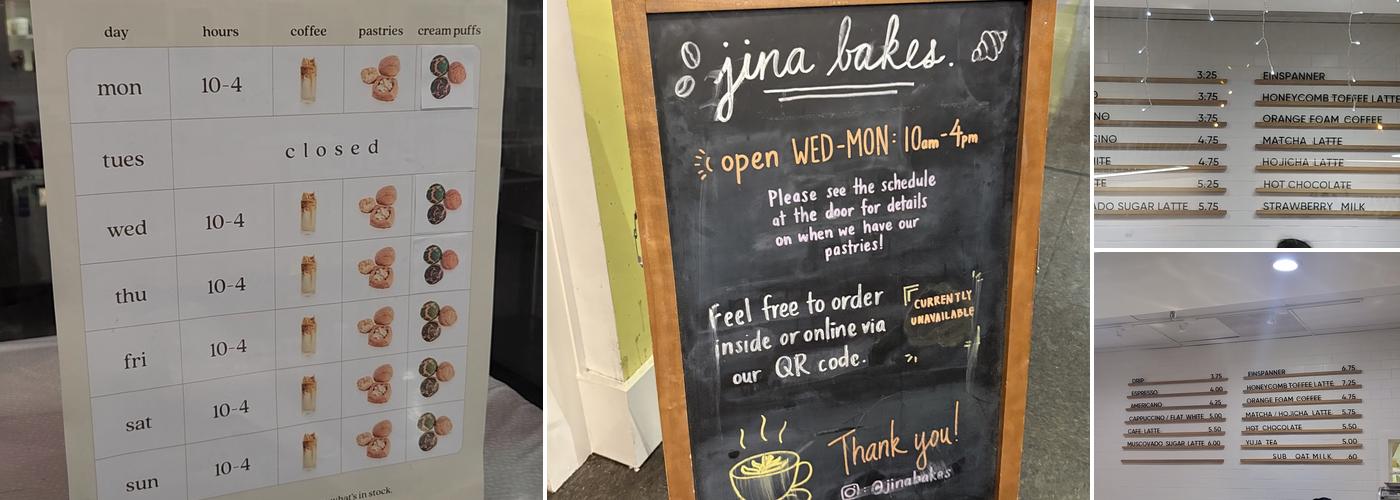 day hours coffee pastries cream puffs
mon 10-4
tues closed
wed 10-4
thu 10-4
fri 10-4
sat 10-4
sun 10-4
what's in stock.
jina bakes.
open WED-MON: 10am-4pm
Please see the schedule
at the door for details
on when we have our
pastries!
Feel free to order
inside or online via
our QR code.
CURRENTLY
UNAVAILABLE
Thank you!
@jinabakes
3.25
3.75
3.75
4.75
4.75
5.25
SUGAR LATTE 5.75
EINSPANNER
HONEYCOMB TOFFEE LATTE
ORANGE FOAM COFFEE
MATCHA LATTE
HOJICHA LATTE
HOT CHOCOLATE
STRAWBERRY MILK
DRIP 3.75
ESPRESSO 4.00
AMERICANO 4.25
CAPPUCCINO / FLAT WHITE 5.00
CAFE LATTE 5.50
MUSCOVADO SUGAR LATTE 6.00
EINSPANNER 6.75
HONEYCOMB TOFFEE LATTE 7.25
ORANGE FOAM COFFEE 4.75
MATCHA / HOJICHA LATTE 5.75
HOT CHOCOLATE 5.50
YUJA TEA 5.00
SUB OAT MILK .60